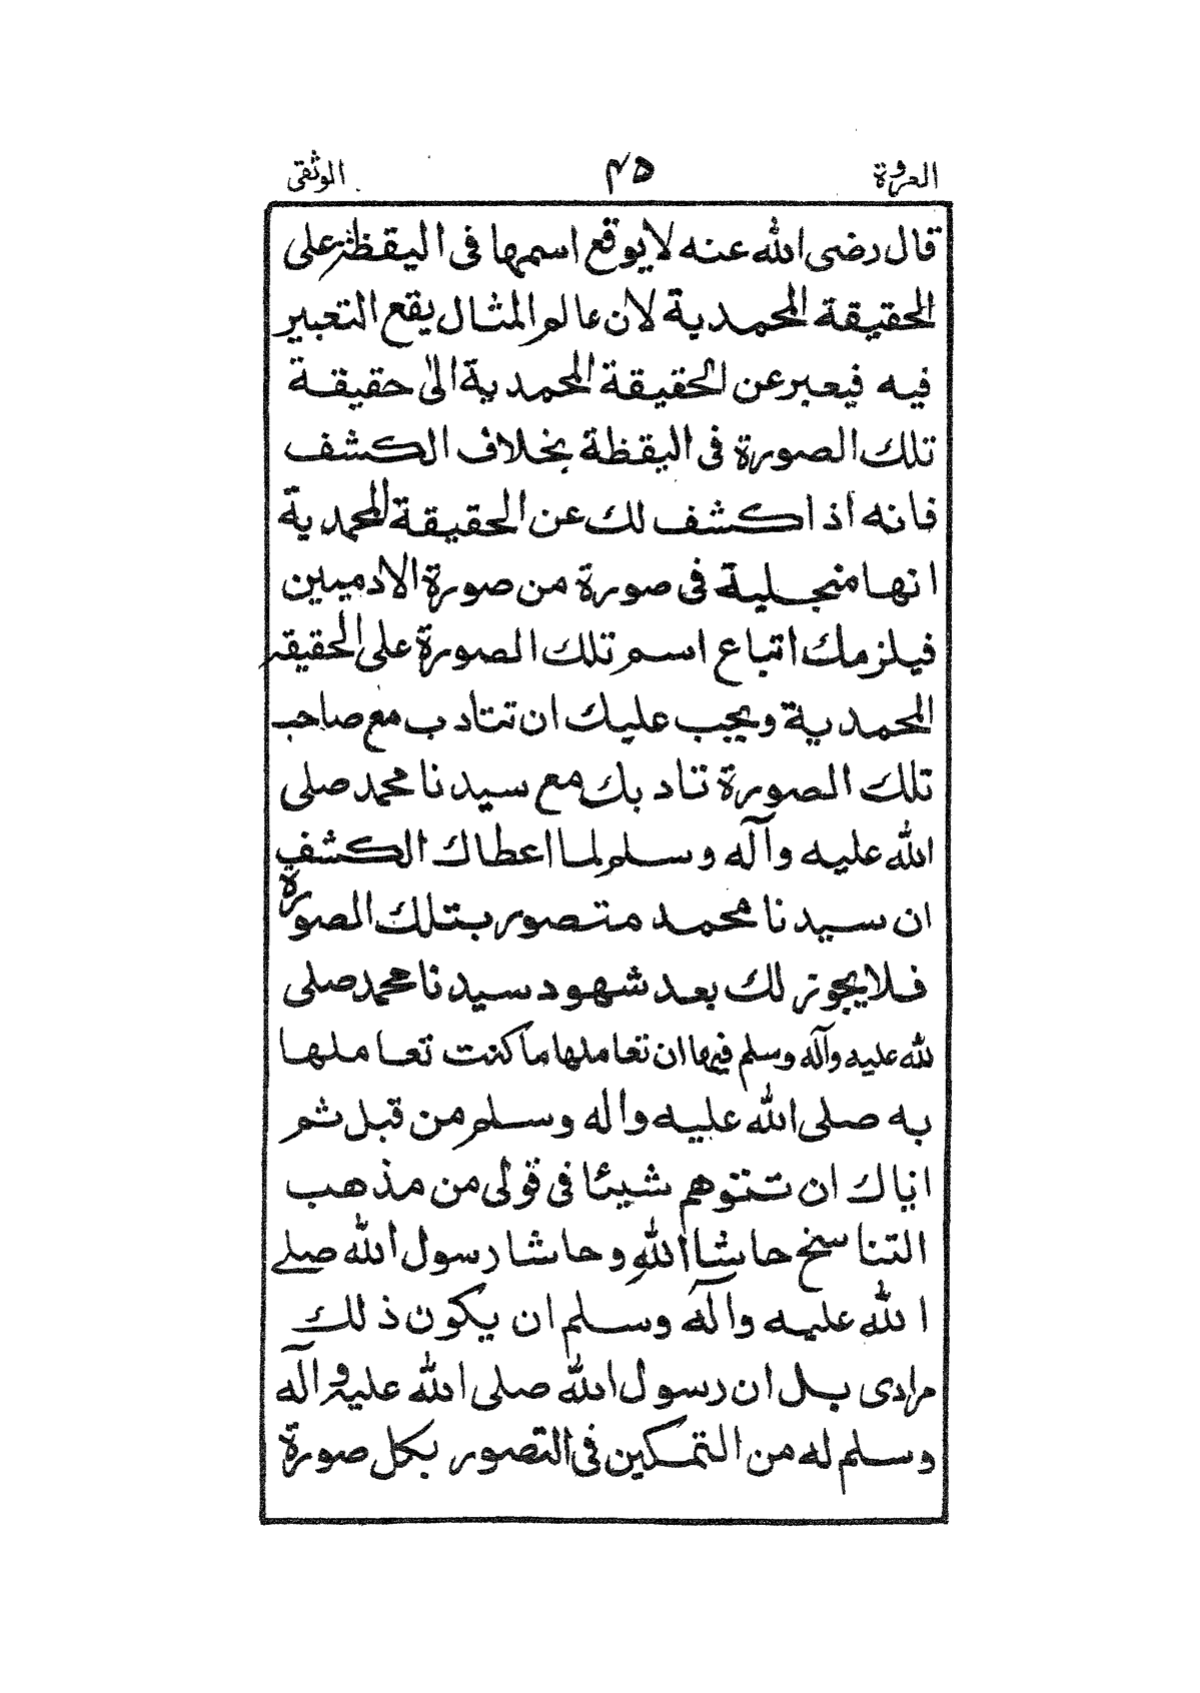 العروة ٤٥ الوثقى
قال رضى الله عنه لا يوقع اسمها فى اليقظة على
الحقيقة المحمدية لان عالم المثال يقع التعبير
فيه فيعبر عن الحقيقة المحمدية الى حقيقة
تلك الصورة فى اليقظة بخلاف الكشف
فانه اذا كشف لك عن الحقيقة المحمدية
انها منجلية فى صورة من صورة الادميين
فيلزمك اتباع اسم تلك الصورة على الحقيقة
المحمدية ويجب عليك ان تتادب مع صاحب
تلك الصورة تادبك مع سيدنا محمد صلى
الله عليه وآله وسلم لما اعطاك الكشف
ان سيدنا محمد متصور بتلك الصورة
فلا يجوز لك بعد شهود سيدنا محمد صلى
لله عليه وآله وسلم فيها ان تعاملها ما كنت تعاملها
به صلى الله عليه واله وسلم من قبل ثم
اياك ان تتوهم شيئا فى قولى من مذهب
التناسخ حاشا الله وحاشا رسول الله صلے
الله عليه وآله وسلم ان يكون ذلك
مرادى بل ان رسول الله صلى الله عليه وآله
وسلم له من التمكين فى التصور بكل صورة